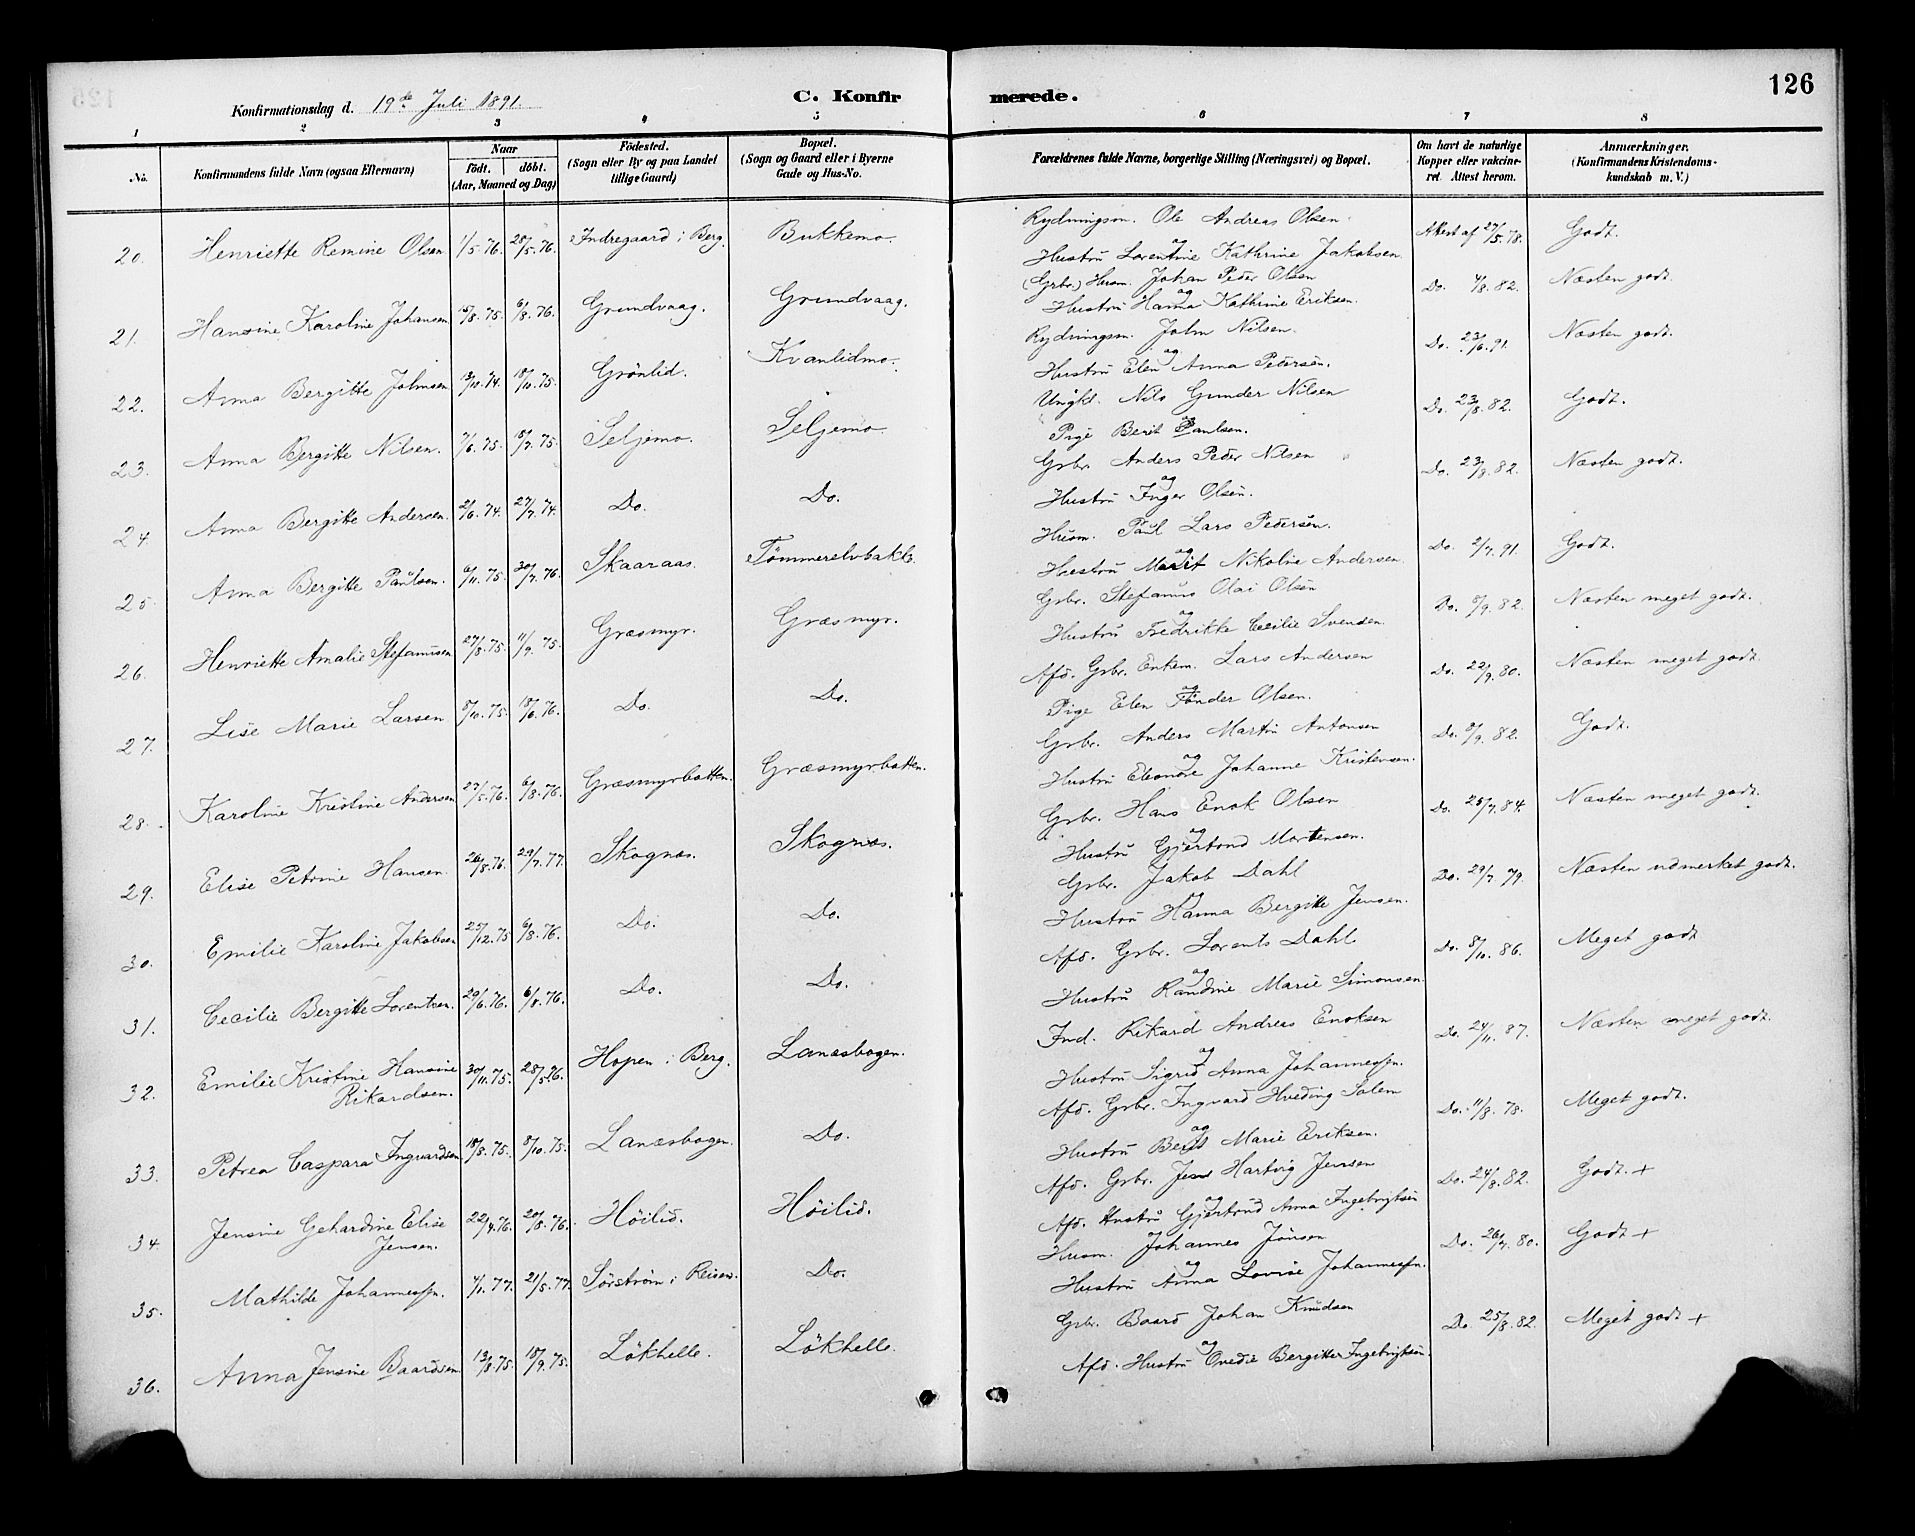 126
Konfirmationsdag d. 19de Juli 1891. C. Konfirmerede.
1 2 3 4 5 6 7 8
No. Konfirmandens fulde Navn (ogsaa Efternavn) Naar födt. döbt. (Aar, Maaned og Dag) Födested. (Sogn eller By og paa Landet tillige Gaard) Bopæl. (Sogn og Gaard eller i Byerne Gade og Hus-No. Forældrenes fulde Navne, borgerlige Stilling (Næringsvei) og Bopæl. Om havt de naturlige Kopper eller vakcineret Attest herom. Anmærkninger. (Konfirmandens Kristendomskundskab m. V.)
20. Henriette Remine Olsen 1/5.76. 28/5.76. Indregaard i Berg. Bukkemo. Rydningsm. Ole Andreas Olsen og Attest af 27/5.78. Godt.
Hustru Lorentine Kathrine Jakobsen.
21. Hansine Karoline Johansen 15/8.75. 6/8.76. Grundvaag. Grundvaag. (Grbr.) Husm. Johan Peder Olsen og Do. 4/8.82. Næsten godt.
Hustru Hanna Kathrine Eriksen.
22. Anna Bergitte Johnsen 13/10.74. 18/10.75. Grönlid. Kvanlidmo. Rydningsm. John Nilsen og Do. 23/6.91. Næsten godt.
Hustru Elen Anna Pedersen.
23. Anna Bergitte Nilsen. 7/6.75. 18/7.75. Seljemo. Seljemo Ungkl. Nils Gunder Nilsen og Do. 23/8.82. Godt.
Pige Berit Paulsen.
24. Anna Bergitte Andersen 2/6.74. 27/7.74. Do. Do. Gbr. Anders Peder Nilsen og Do. 23/8.82. Næsten godt.
Hustru Inger Olsen.
25. Anna Bergitte Paulsen. 6/11.75. 30/7.76. Skaaraas. Tömmerelvbakk. Husm. Paul Lars Pedersen. og Do. 2/7.91. Godt.
Hustru Marit Nikoline Andersen
26. Henriette Amalie Stefanusen 27/8.75. 11/9.75. Græsmyr. Græsmyr. Gbr. Stefanus Olai Olsen og Do. 8/9.82. Næsten meget godt.
Hustru Fredrikke Cecilie Svensen
27. Lise Marie Larsen 8/10.75. 18/6.76. Do. Do. Afd. Gbr. Enkem. Lars Andersen og Do. 22/9.80. Næsten meget godt
Pige Elen Olsen.
28. Karoline Kristine Andersen 27/5.76. 6/8.76. Græsmyrbotten. Græsmyrbotten. Gbr. Anders Martin Antonsen og Do. 8/9.82. Godt.
Hustru Eleonore Johanne Kristensen.
29. Elise Petrine Hansen. 26/8.76. 29/7.77. Skognæs. Skognæs. Gbr. Hans Enok Olsen og Do. 25/7.84. Næsten meget godt.
Hustru Gjertrud Mortensen.
30. Emilie Karoline Jakobsen 25/12.75 6/8.76. Do. Do. Gbr. Jakob Dahl og Do. 29/7.79. Næsten udmerket godt.
Hustru Hanna Bergitte Jensen.
31. Cecilie Bergitte Lorentsen. 29/6.76. 6/8.76. Do. Do. Afd. Gbr. Lorents Dahl og Do. 8/10.86. Meget godt
Hustru Randine Marie Simonsen
32. Emilie Kristine Hansine Rikardsen. 30/11.75. 28/5.76. Hopen i Berg. Lanæsbogen. Ind. Rikard Andreas Enoksen og Do. 24/11.87. Næsten meget godt.
Hustru Sigrid Anna Johannessn.
33. Petrea Caspara Ingvardsen 18/8.75. 8/10.75. Lanæsbogen. Do. Afd. Gbr. Ingvard Hveding Salem og Do. 11/8.78. Meget godt.
Hustru Berit Marie Eriksen.
34. Jensine Gehardine Elise Jensen. 22/4.76. 20/8.76. Höilid. Höilid. Afd. Gbr. Jens Hartvig Jensen og Do. 24/8.82. Godt. +
Afd. Hustru Gjertrud Anna Ingebrigtsen
35. Mathilde Johannessn. 4/1.77. 21/5.77. Sörström i Reisen. Do. Husm. Johannes Jönsen og Do. 26/7.80. Godt +
Hustru Anna Lovise Johannessn.
36. Anna Jensine Baardsen 13/8.75. 18/9.75. Lökhelle. Lökhelle. Gbr. Baard Johan Knudsen og Do. 25/8.82. Meget godt +
Afd. Hustru Ovedie Bergitte Ingebrigtsen.